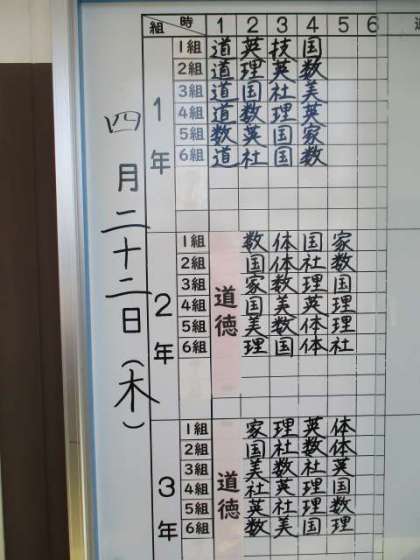 組 時 1 2 3 4 5 6
四月二十二日(木)
1年
1組 道 英 技 国
2組 道 理 英 数
3組 道 国 社 美
4組 道 数 理 英
5組 数 英 国 家
6組 道 社 国 数
2年
道徳
1組 数 体 国 家
2組 国 体 社 数
3組 家 数 理 国
4組 国 美 英 理
5組 美 数 体 理
6組 理 国 体 社
3年
道徳
1組 家 理 英 体
2組 国 社 数 体
3組 美 数 社 英
4組 社 英 理 国
5組 英 社 理 数
6組 数 美 国 理